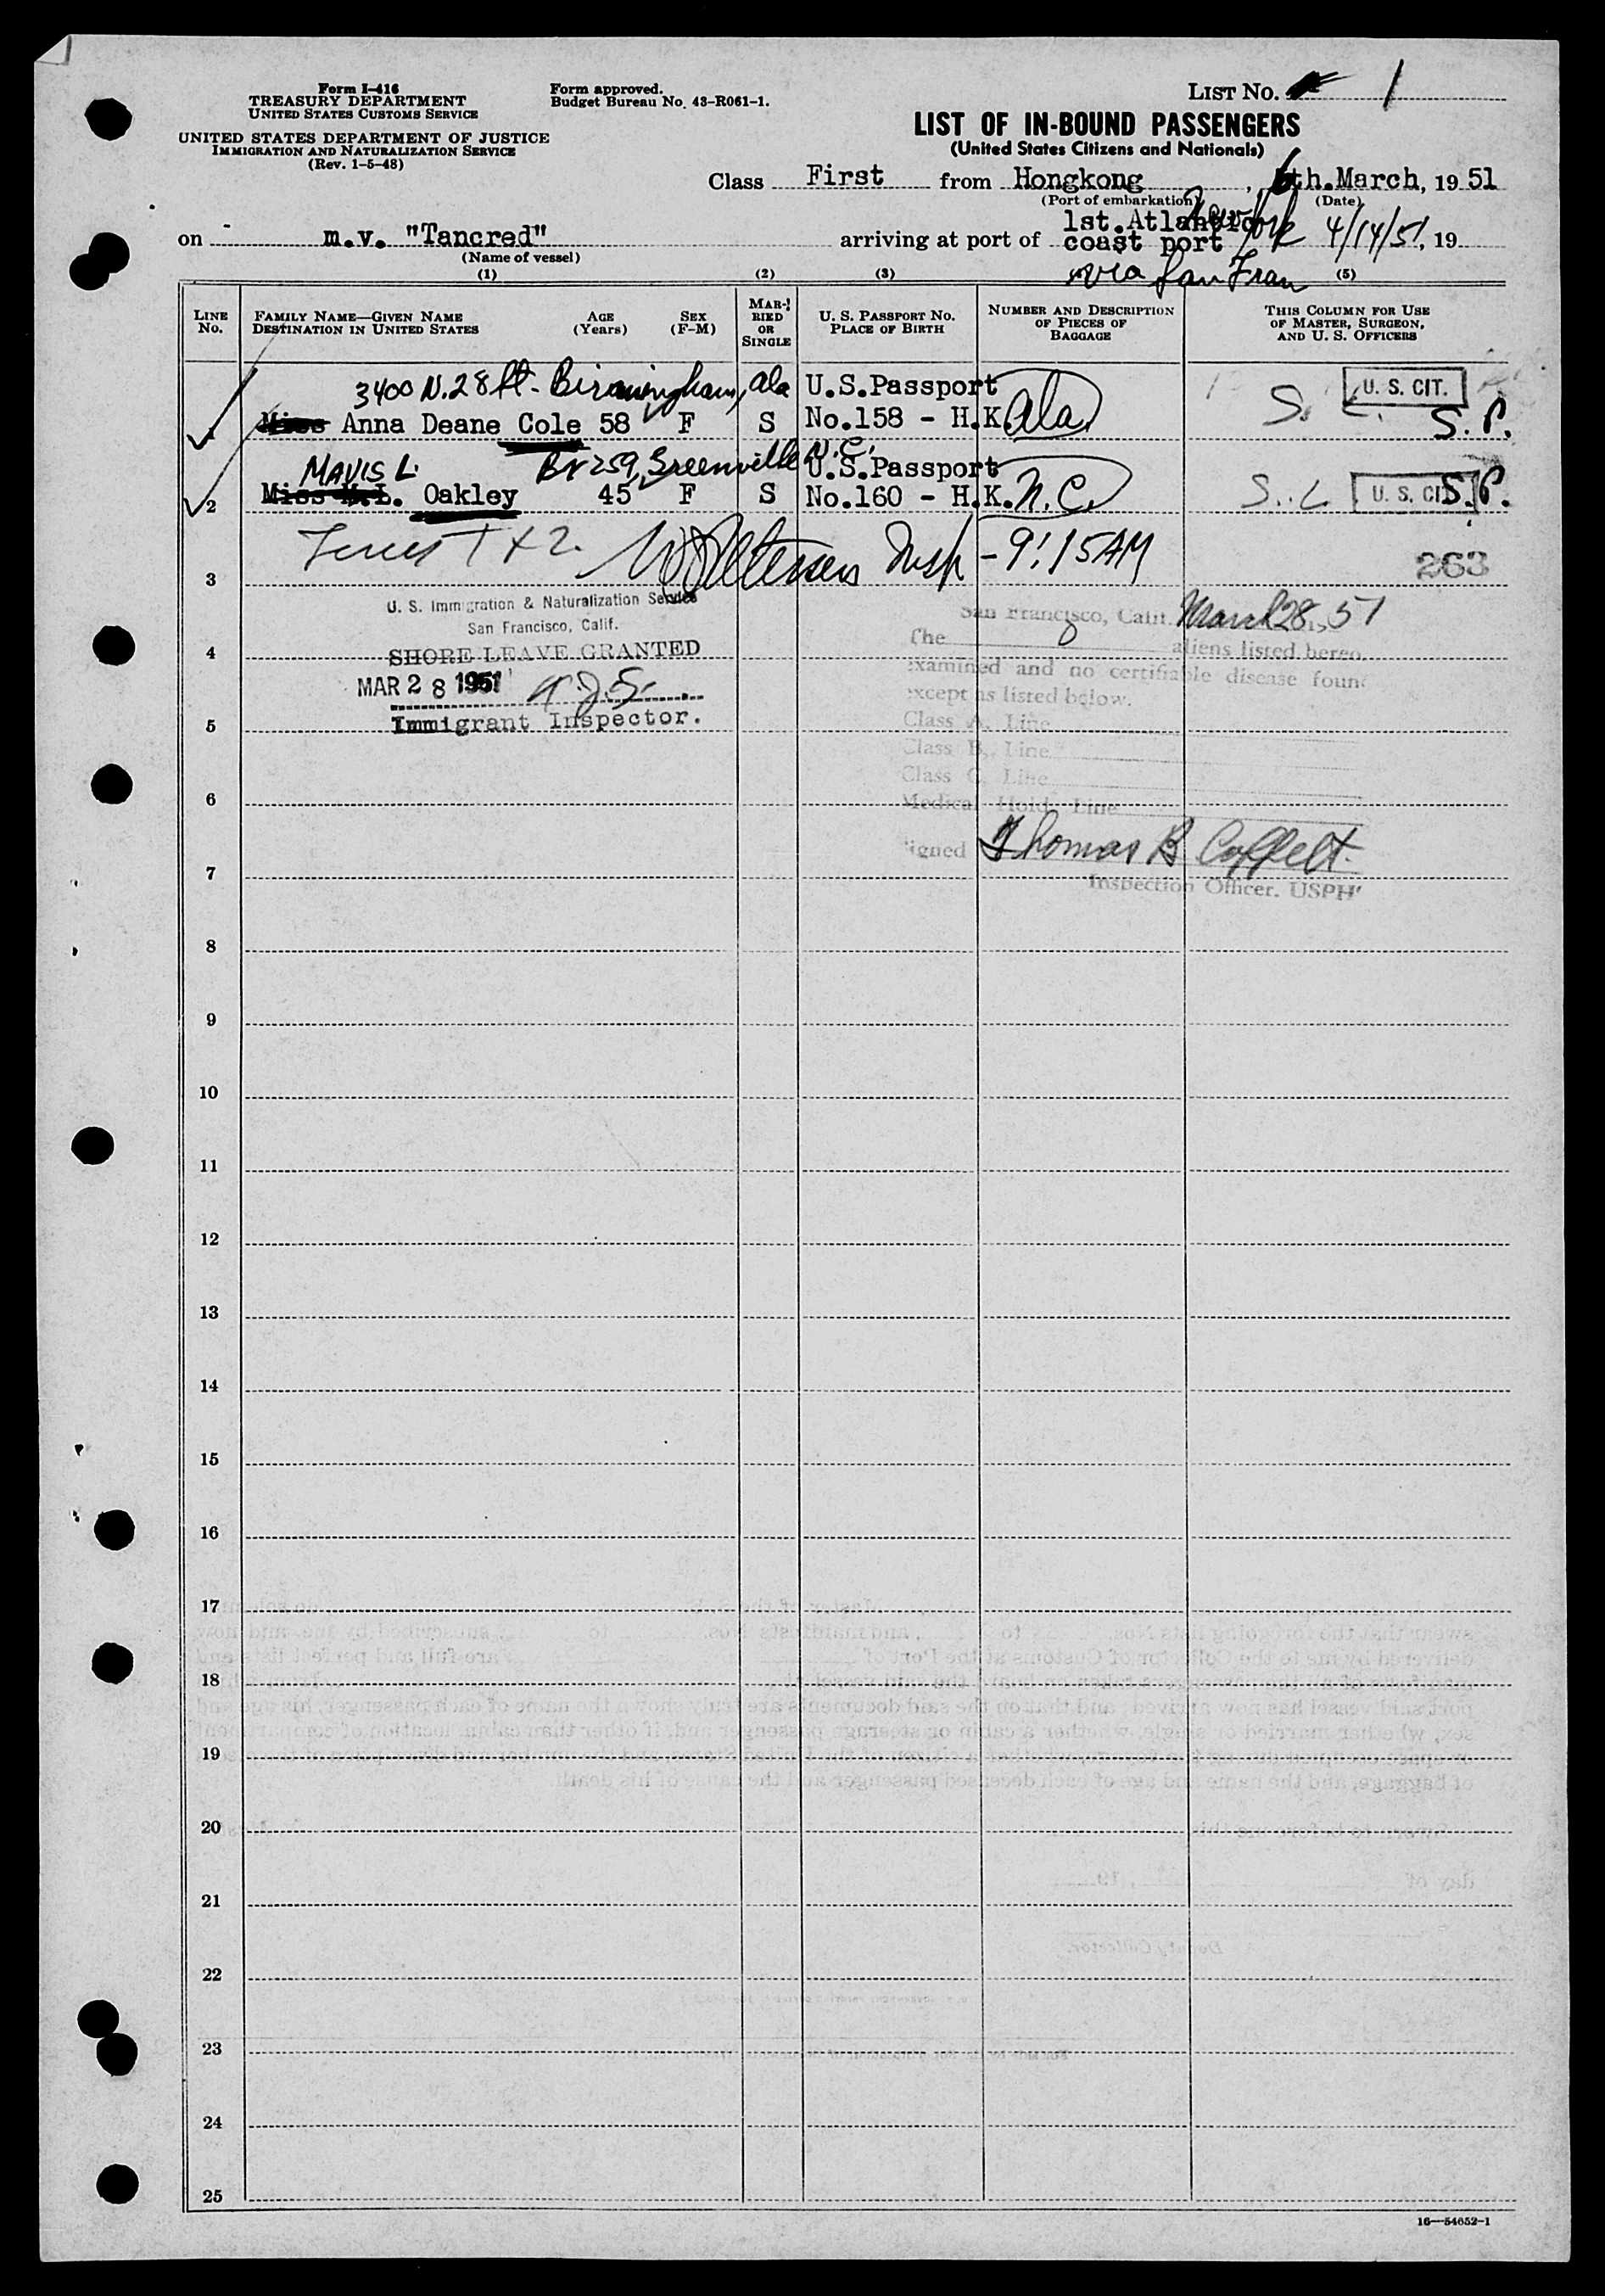 Form I-416
TREASURY DEPARTMENT
UNITED STATES CUSTOMS SERVICE
UNITED STATES DEPARTMENT OF JUSTICE
IMMIGRATION AND NATURALIZATION SERVICE
(Rev. 1-5-48)
Form approved.
Budget Bureau No. 43-R061-1.
LIST NO. 1
LIST OF IN-BOUND PASSENGERS
(United States Citizens and Nationals)
Class First from Hongkong, 6th.March, 1951
(Port of embarkation) (Date)
on m.v. "Tancred" arriving at port of 1st.Atlantic coast port New York 4/14/51, 19
(Name of vessel)
via San Fran
(1) (2) (3) (5)
LINE NO.
FAMILY NAME—GIVEN NAME
DESTINATION IN UNITED STATES
AGE (Years)
SEX (F-M)
MARRIED OR SINGLE
U. S. PASSPORT NO.
PLACE OF BIRTH
NUMBER AND DESCRIPTION OF PIECES OF BAGGAGE
THIS COLUMN FOR USE OF MASTER, SURGEON, AND U. S. OFFICERS
3400 N. 28 St. Birmingham, Ala U.S.Passport U. S. CIT.
Miss Anna Deane Cole 58 F S No.158 - H.K. Ala. S. S.P.
MAVIS L. Bx 259, Greenville N.C. U.S.Passport
2 Miss M.L. Oakley 45 F S No.160 - H.K. N.C. S.L U. S. CIT S.P.
1 & 2. Insp - 9:15 AM
3 263
U. S. Immigration & Naturalization Service
San Francisco, Calif.
SHORE LEAVE GRANTED
MAR 28 1951
Immigrant Inspector.
San Francisco, Calif. March 28, 51
The 0 aliens listed hereo
examined and no certifiable disease foun
except as listed below.
Class A. Line
Class B. Line
Class C. Line
Medical Hold, Line
Signed Thomas B Coffelt.
Inspection Officer. USPH
4
5
6
7
8
9
10
11
12
13
14
15
16
17
18
19
20
21
22
23
24
25
16—54652-1